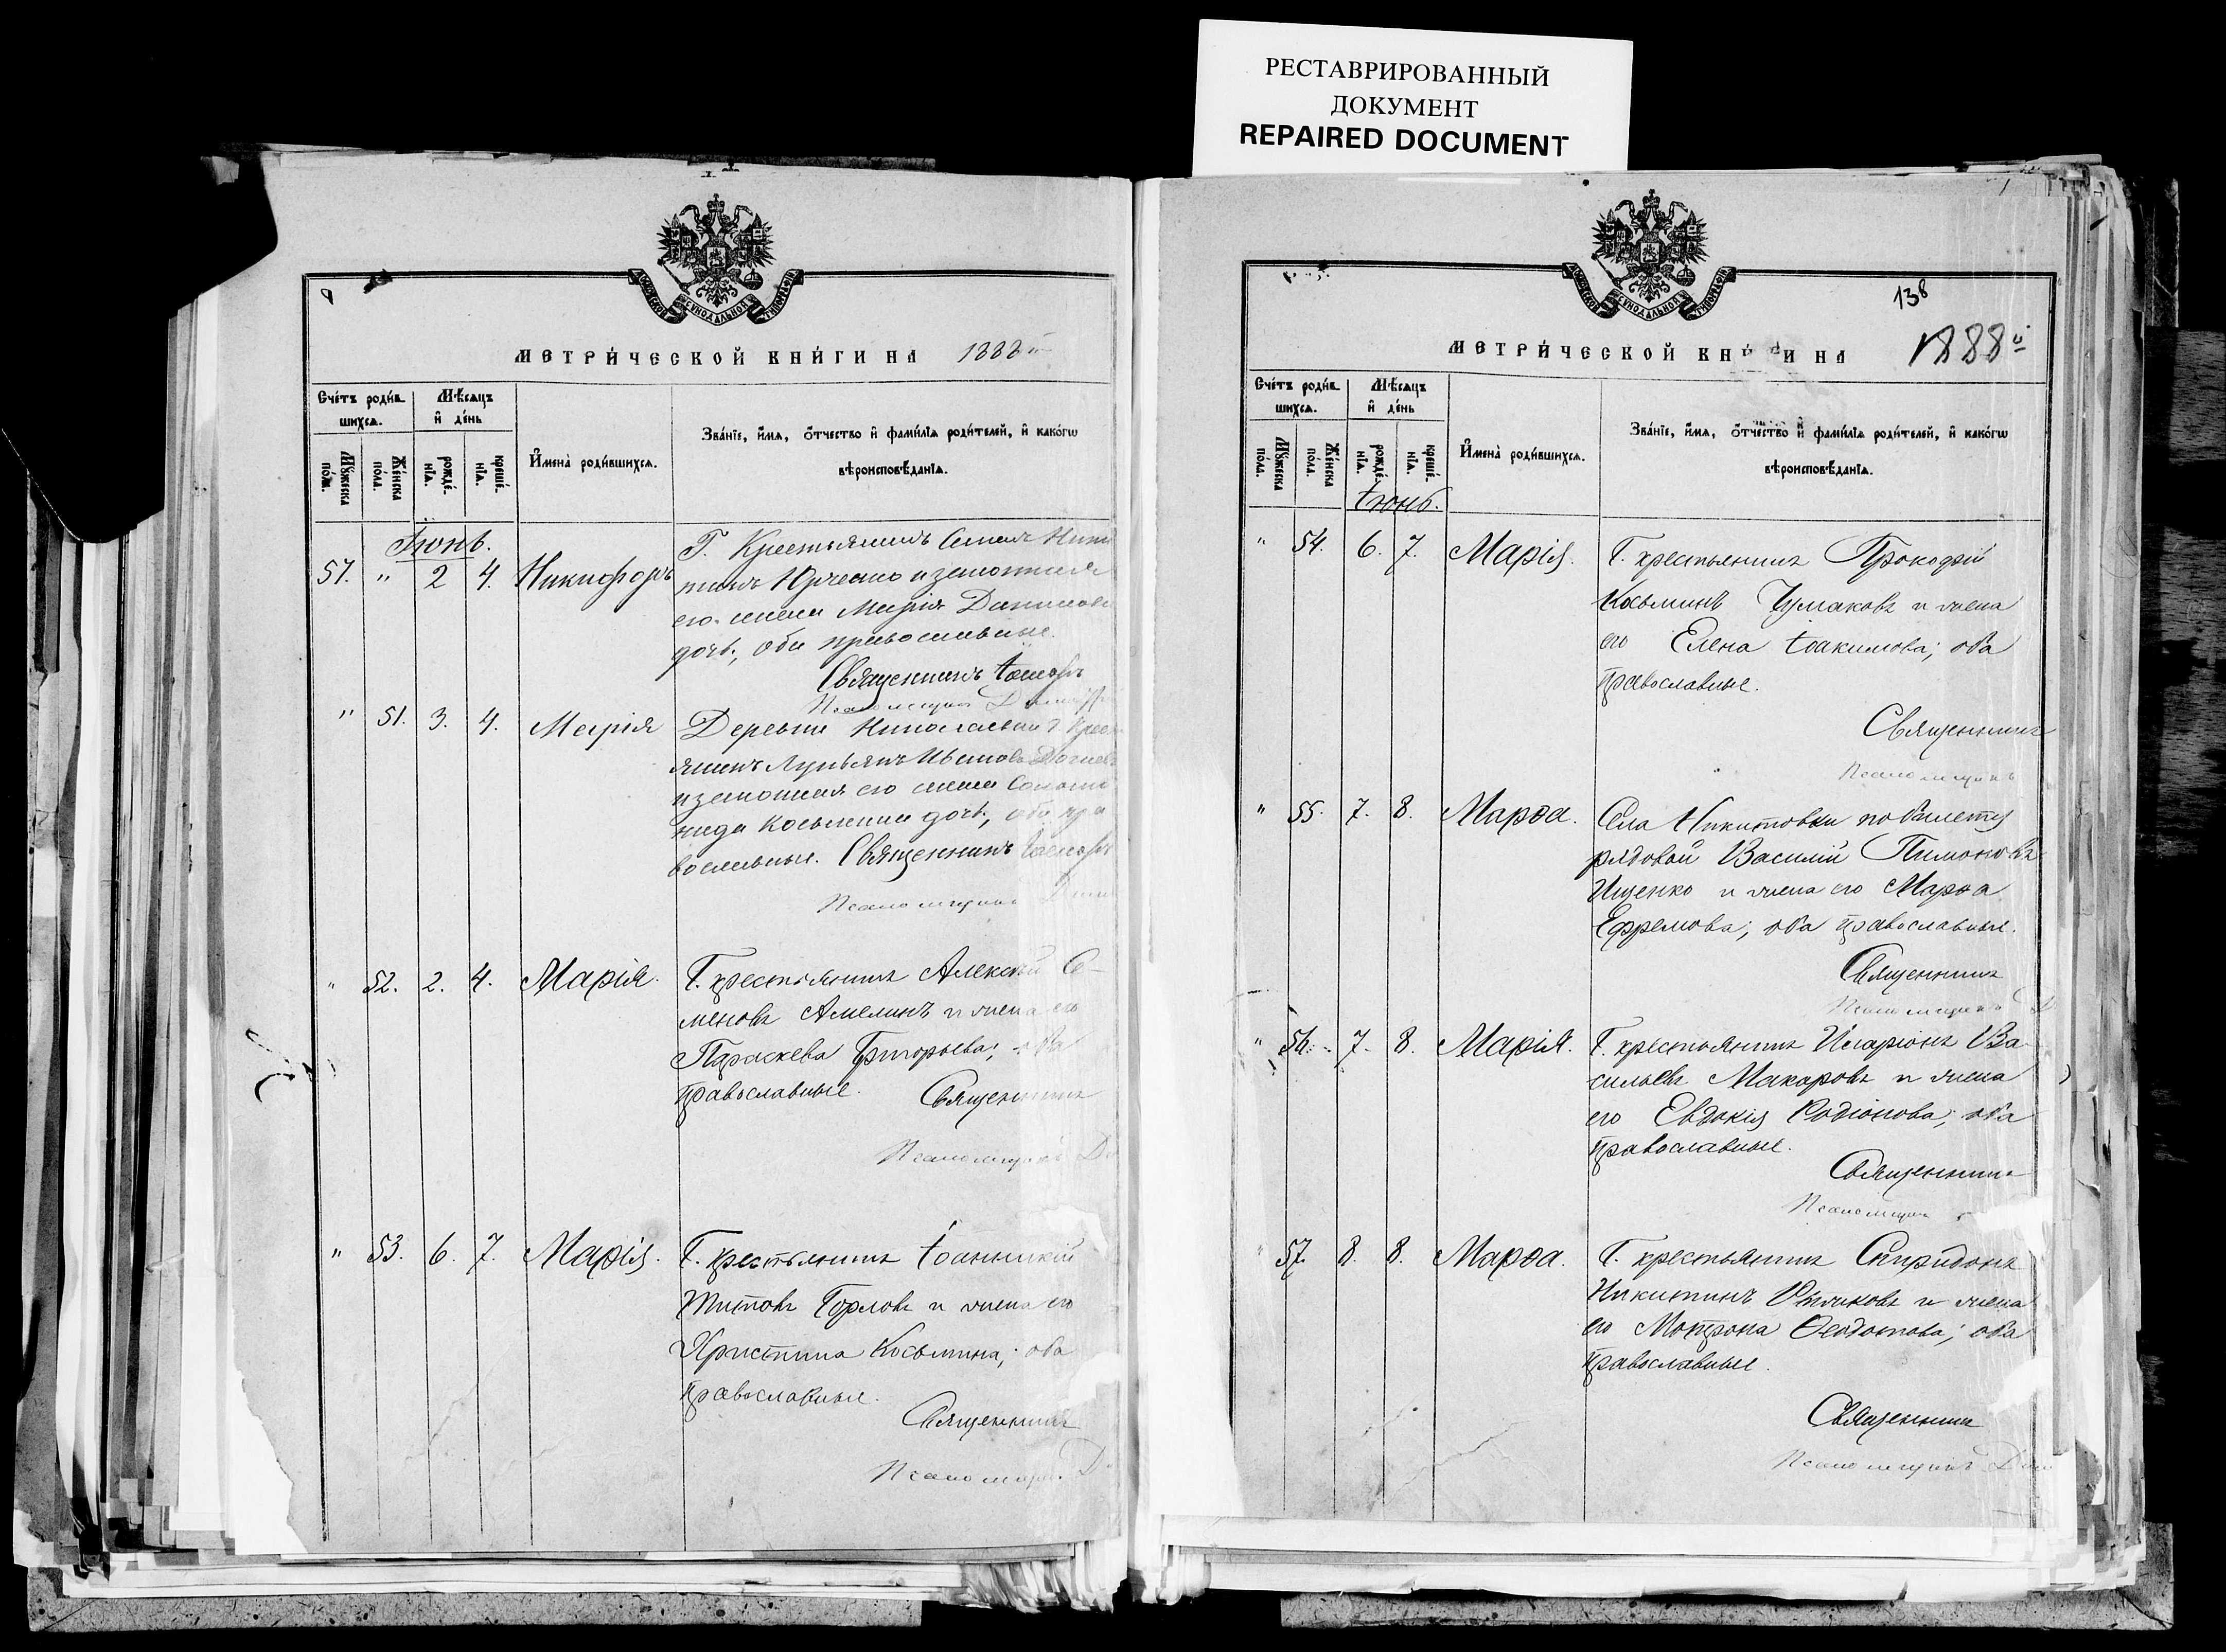 РЕСТАВРИРОВАННЫЙ
ДОКУМЕНТ
REPAIRED DOCUMENT
МЕТРИ́ЧЕСКОЙ КНИ́ГИ НА 1888
Сче́тъ роди́в
шихся.
Мѣ́сяцъ
и҆ де́нь
Мꙋ́жеска по́ла.
Же́нска по́ла.
рожде́нїя.
креще́нїя.
И҆мена̀ роди́вшихся.
Зва́нїе, и҆́мя, ѻ҆́тчество и҆ фами́лїя роди́телей, и҆ како́гѡ
вѣроисповѣ́данїя.
Іюнь.
57. " 2 4. Никифоръ
Г. Крестьянинъ Семенъ Ники
тинъ Юрченко и законная
его жена Марія
дочь, оба православные.
Священникъ
" 51. 3. 4. Марія
Деревни
Иванов
и законная его жена
Косьмина дочь, оба пра
вославные. Священникъ
Псаломщикъ
" 52. 2. 4. Марія.
Г. крестьянинъ Алексѣй Се-
меновъ Амелинъ и жена его
Параскева Григорьева; оба
православные. Священникъ
Псаломщикъ
" 53. 6. 7. Марія.
Г. крестьянинъ Іоанникій
Титовъ Горловъ и жена его
Христина Косьмина; оба
православные.
Священникъ
Псаломщикъ
138
МЕТРИ́ЧЕСКОЙ КНИ И НА 1888й
Сче́тъ роди́в
шихся.
Мѣ́сяцъ
и҆ де́нь
Мꙋ́жеска по́ла.
Же́нска по́ла.
рожде́нїя.
креще́нїя.
И҆мена̀ роди́вшихся.
Зва́нїе, и҆́мя, ѻ҆́тчество и҆ фами́лїя роди́телей, и҆ како́гѡ
вѣроисповѣ́данїя.
Іюнь.
" 54. 6. 7. Марія.
Г. крестьянинъ Прокофій
Косьминъ Чумаковъ и жена
его Елена Іоакимова; оба
православные.
Священникъ
Псаломщикъ
" 55. 7. 8. Марѳа.
Села Никитовки по билету
рядовой Василій Пимоновъ
Ищенко и жена его Марѳа
Ефремова; оба православные.
Священникъ
Псаломщикъ
" 56. 7. 8. Марія.
Г. крестьянинъ Иларіонъ Ва
сильевъ Макаровъ и жена
его Евдокія Родіонова; оба
православные.
Священникъ
Псаломщикъ
" 57. 8. 8. Марѳа.
Г. крестьянинъ Спиридонъ
Никитинъ и жена
его Матрона Ѳеодотова; оба
православные.
Священникъ
Псаломщикъ